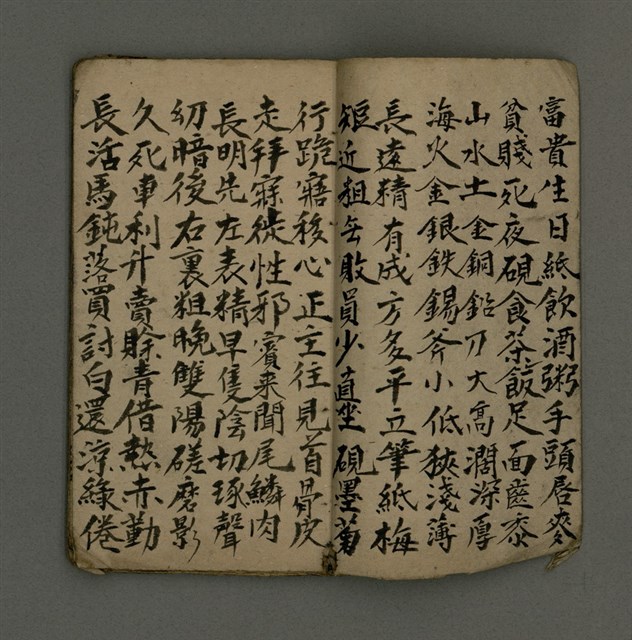 富貴生日紙飲酒粥手頭唇麥
貧賤死夜硯食茶飯足面齒黍
山水土金銅鉛刀大高濶深厚
海火金銀鉄錫斧小低狹淺薄
長遠精有成方多平立筆紙梅
短近粗無敗員少直坐硯墨菊
行跪寤移心正主往見首骨皮
走拜寐徙性邪賓来聞尾鱗肉
長明先左表精早隻陰切琢聲
幼暗後右裏粗晚雙陽磋磨影
久死車利升賣賒青借熱赤勤
長活馬鈍落買討白還涼綠倦